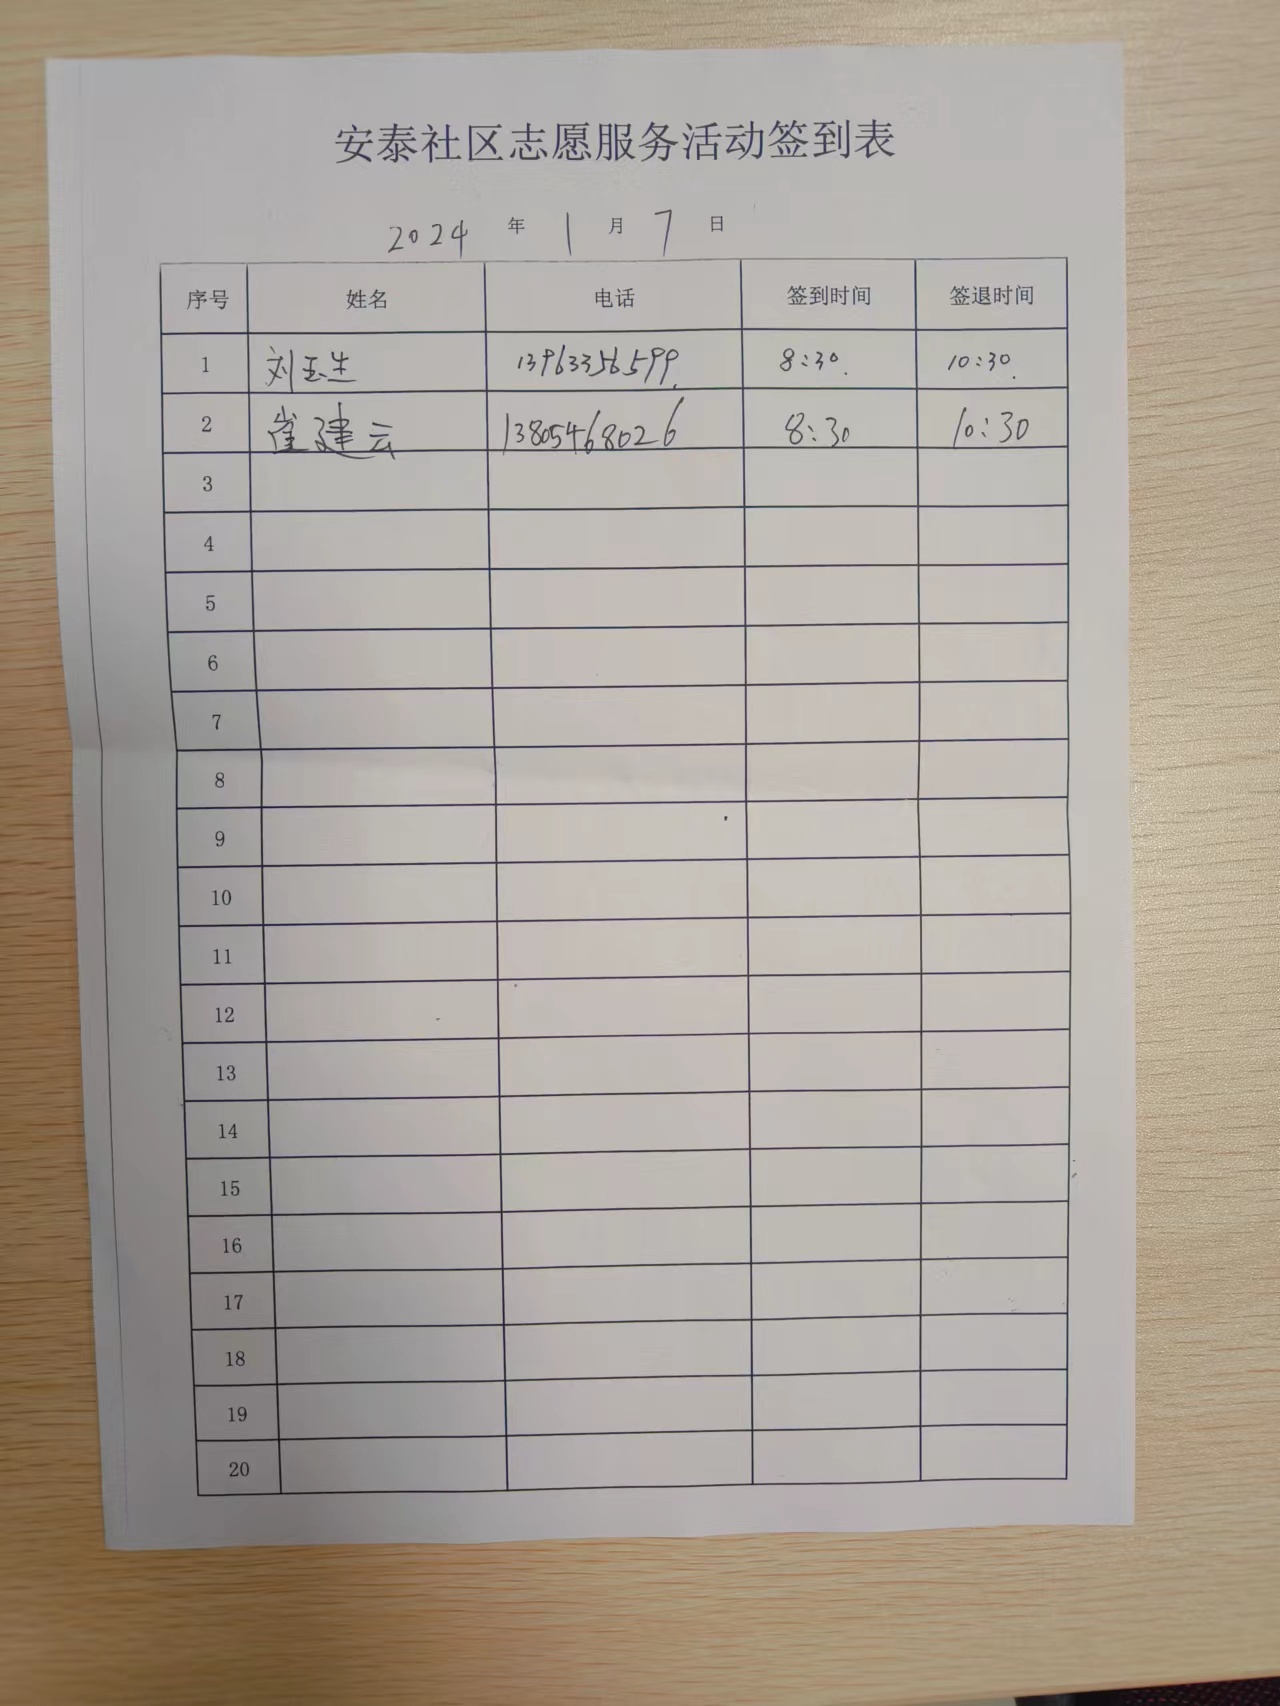 安泰社区志愿服务活动签到表
2024 年 1 月 7 日
序号 姓名 电话 签到时间 签退时间
1 刘玉生 13963356599. 8:30. 10:30.
2 崔建云 13805468026 8:30 10:30
3
4
5
6
7
8
9
10
11
12
13
14
15
16
17
18
19
20